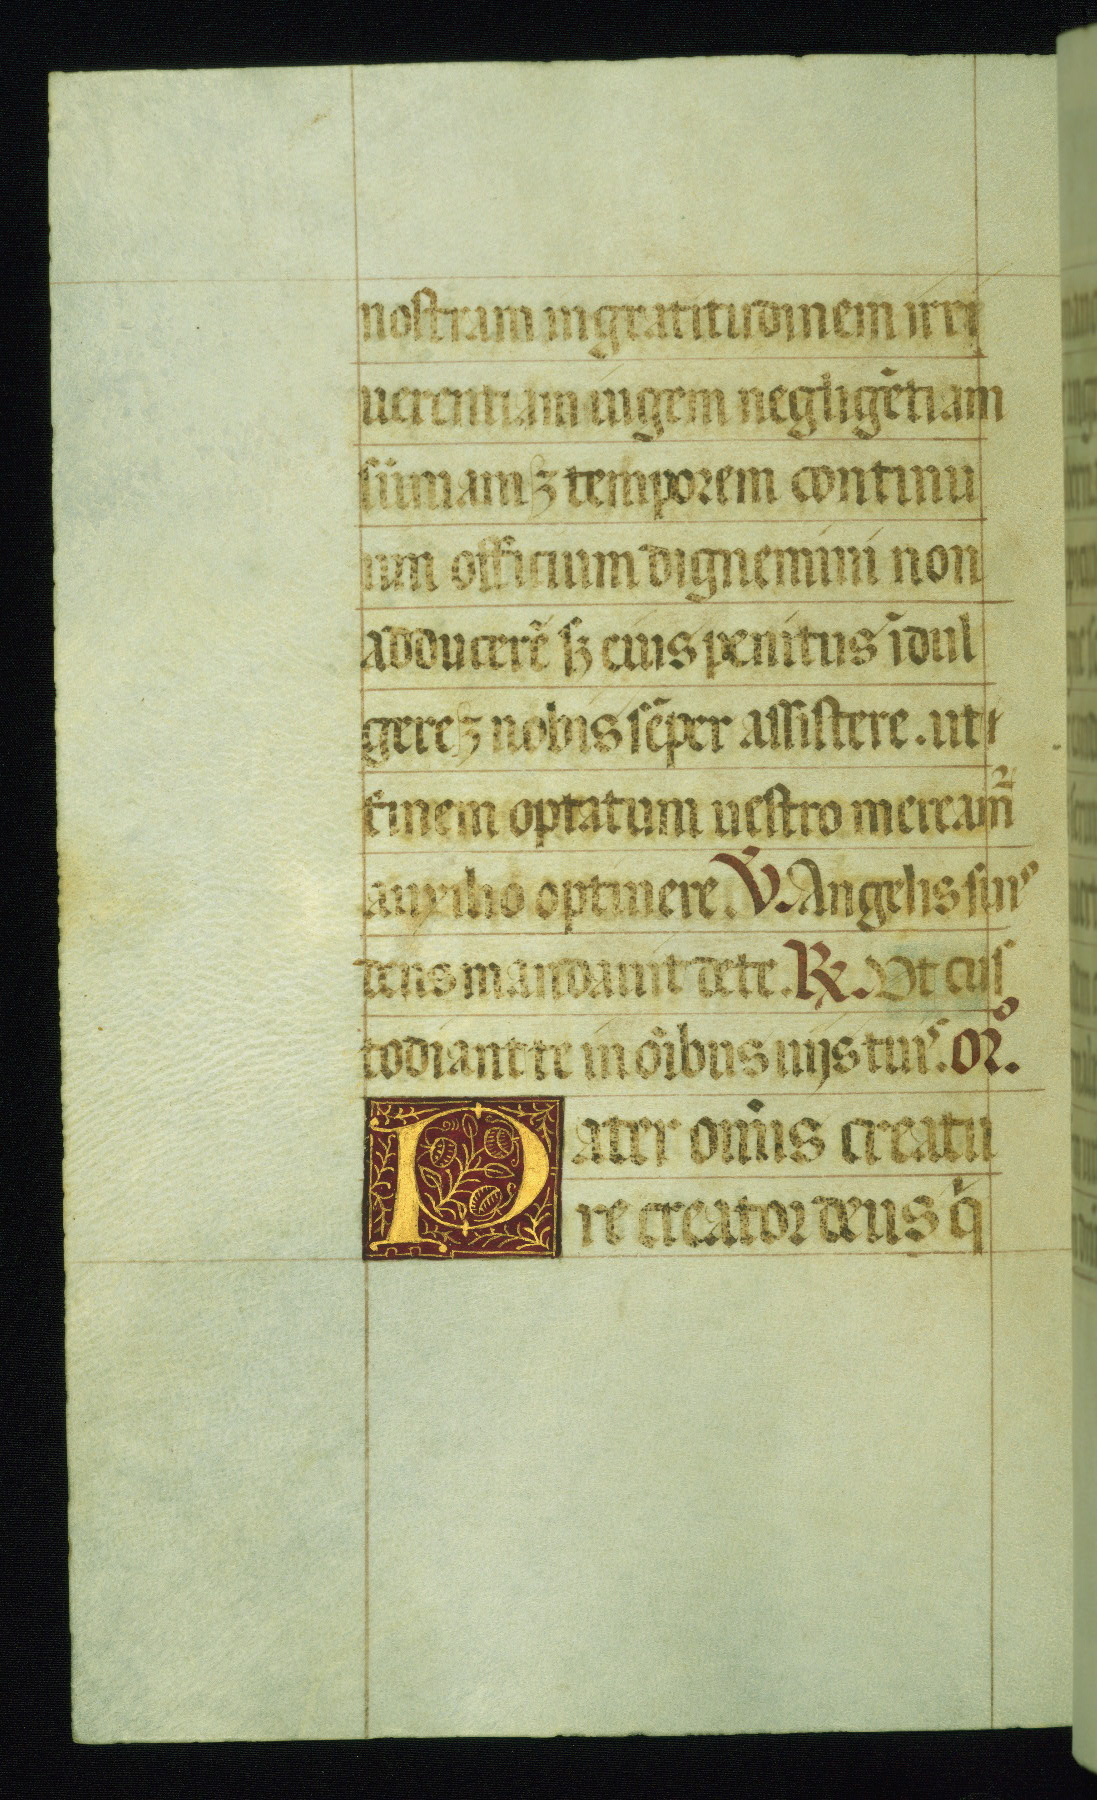 nostram ingratitudinem irre
uerentiam iugem negligētiam
sūmamqꝫ temporem continu
um officium dignemini non
abducere᷑ sꝫ eius penitus īdul
gereqꝫ nobis sēper assistere. ut
finem optatum uestro mereamꝛ̄
auxilio optinere. V̄. Angelis suisͦ
deus mandauit de te. ℟. Vt cus
todiant te in oībus uijs tuis. ORͦ.
Pater omīs creatu
re creator deus qͥ